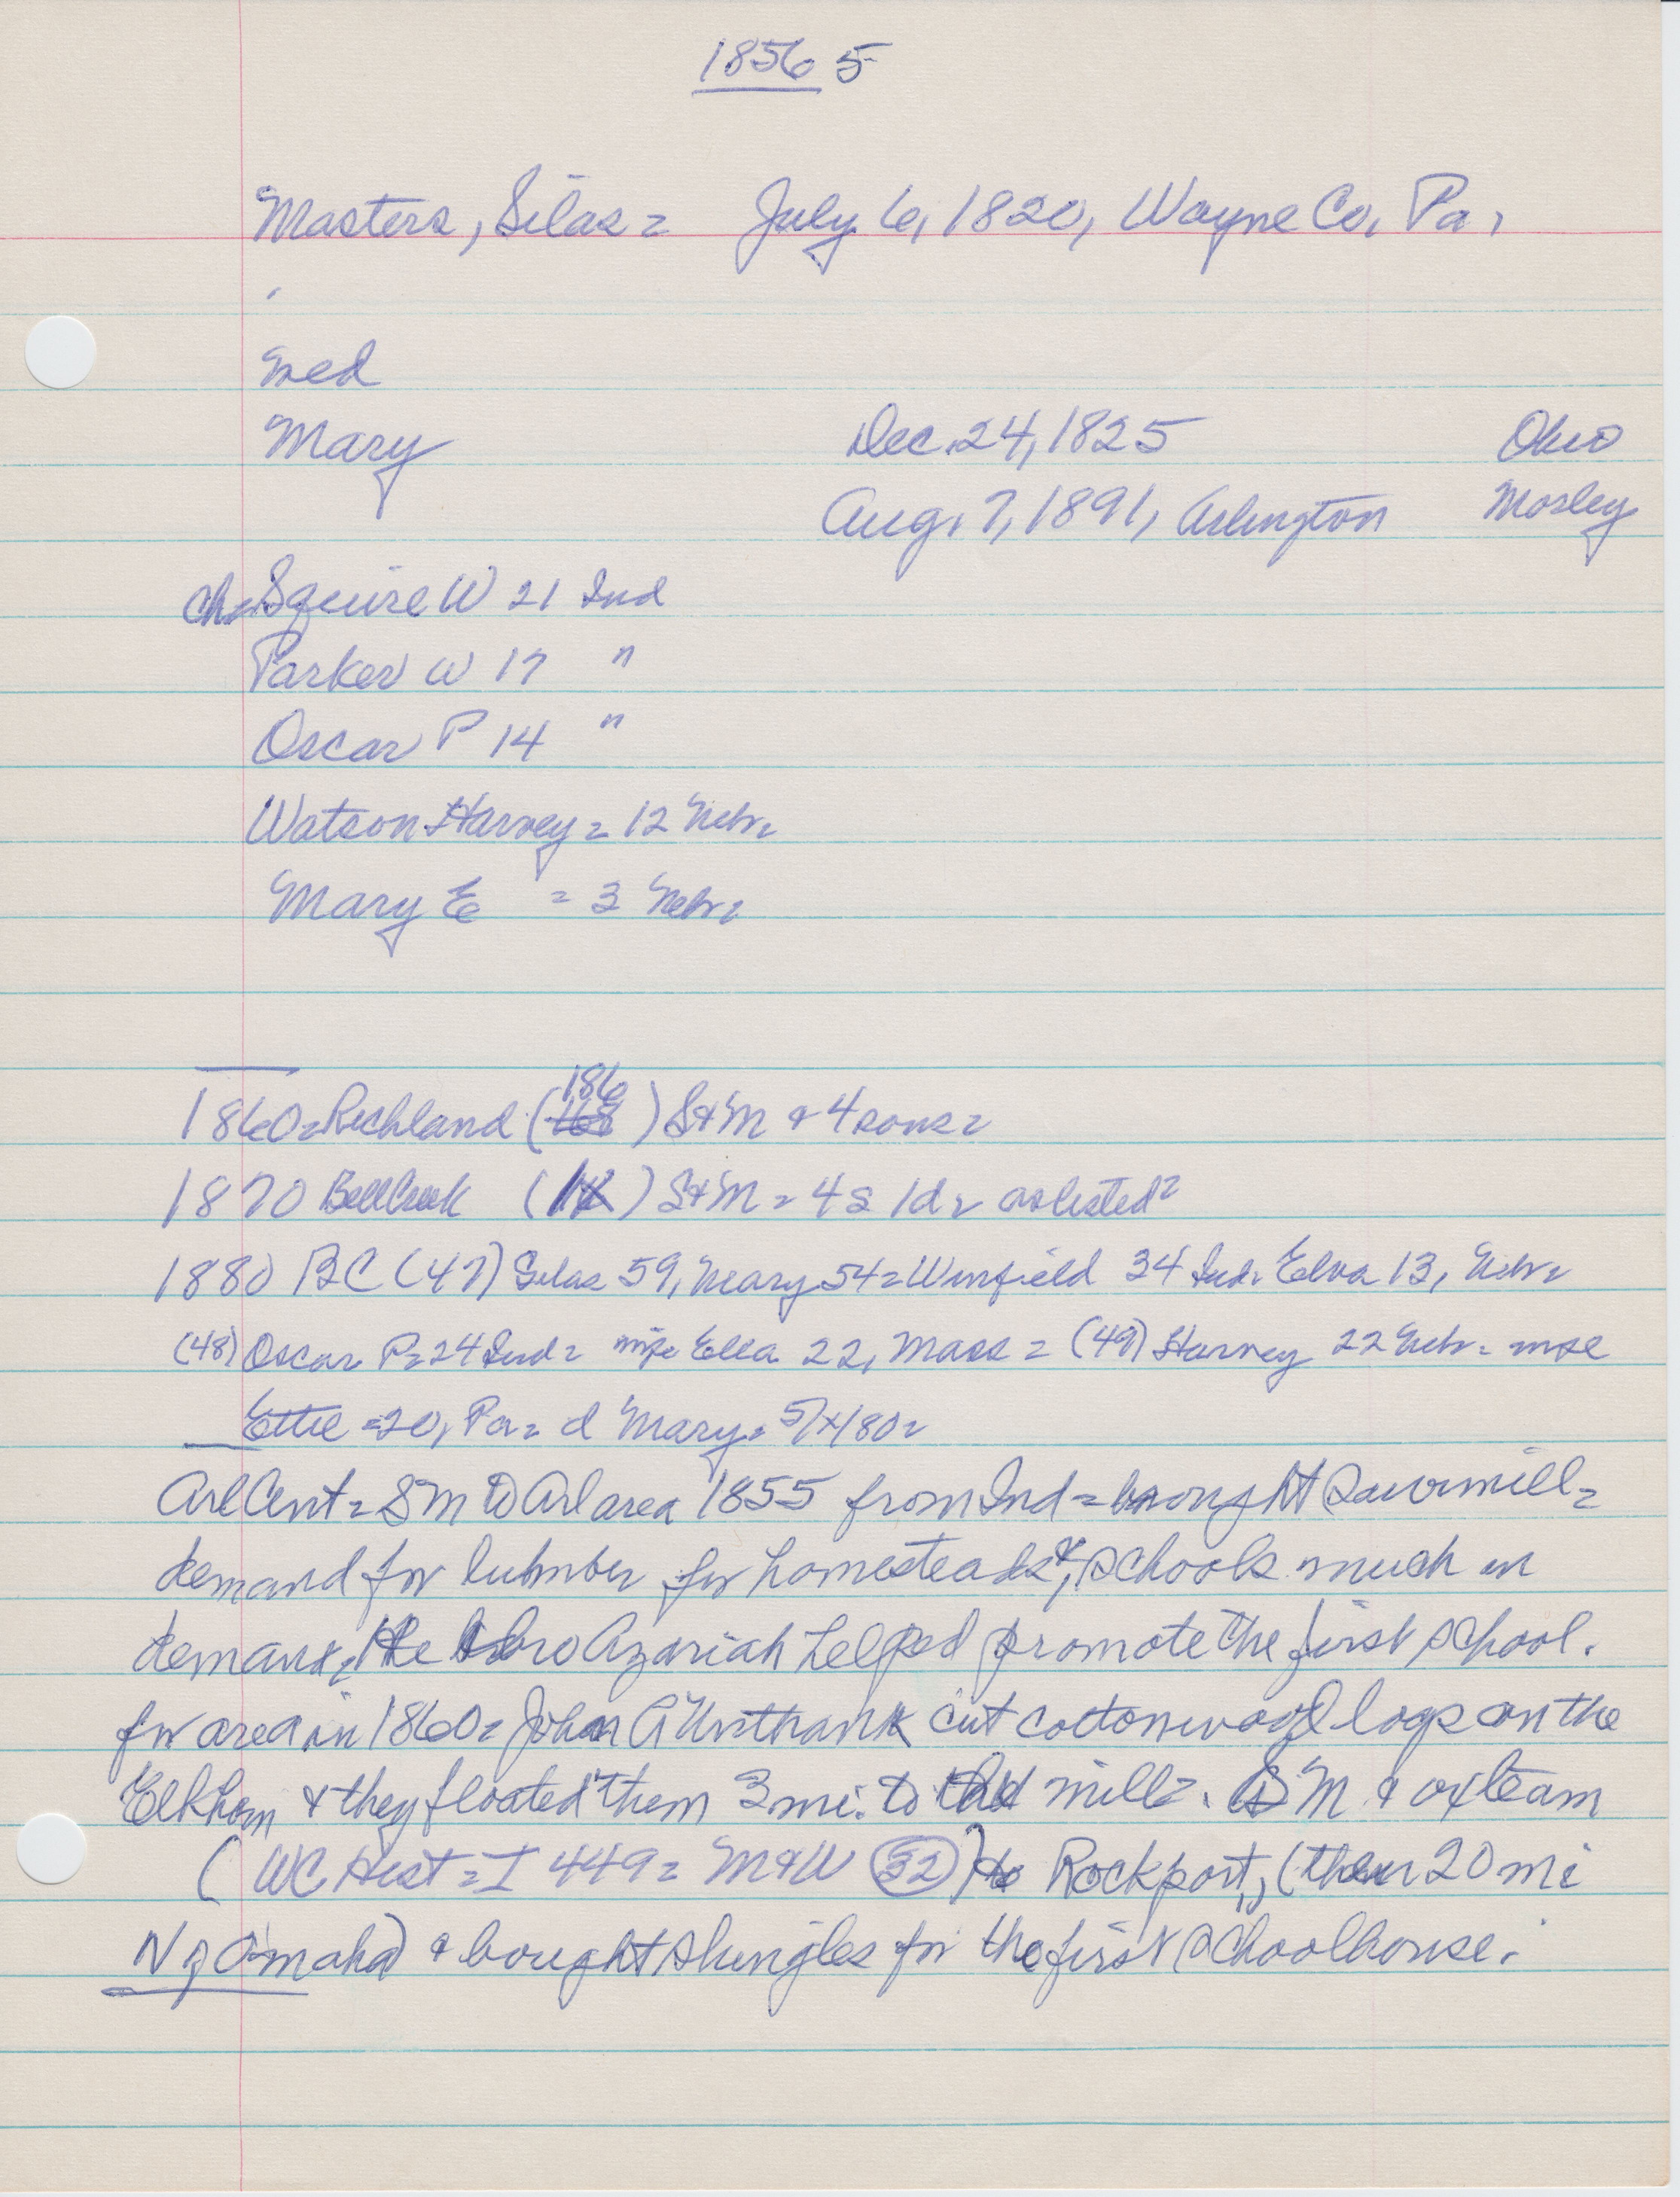 1856 5
Masters, Silas = July 6, 1820, Wayne Co, Pa,
Med
Mary Dec. 24, 1825 Ohio
Aug. 7, 1891, Arlington Mosley
Ch= Squire W 21 Ind
Parker W 17 "
Oscar P 14 "
Watson Harvey = 12 Nebr=
Mary E = 3 Nebr=
186
1860= Richland ( ) S+M & 4 sons=
1870 Bell Creek ( ) S+M = 4s 1d = as listed=
1880 BC (47) Silas 59, Mary 54= Winfield 34 Ind. Elva 13, Nebr=
(48) Oscar P= 24 Ind= Ella 22, Mass = (49) Harvey 22 Nebr.
Ettie =20, Pa= d Mary= 5/ /80=
Arl Cent= SM to Arl area 1855 from Ind = brought sawmill=
demand for lubmber for homesteads, & schools much in
demand, He bro Azariah helped promote the first school.
for area in 1860= John A Unthank cut cottonwood logs on the
Elkhorn & they floated them 3 mi. to mill=. SM & ox team
(WC Hist = I 449= M&W 32) to Rockport, (then 20 mi
N of Omaha) & bought shingles for the first schoolhouse.